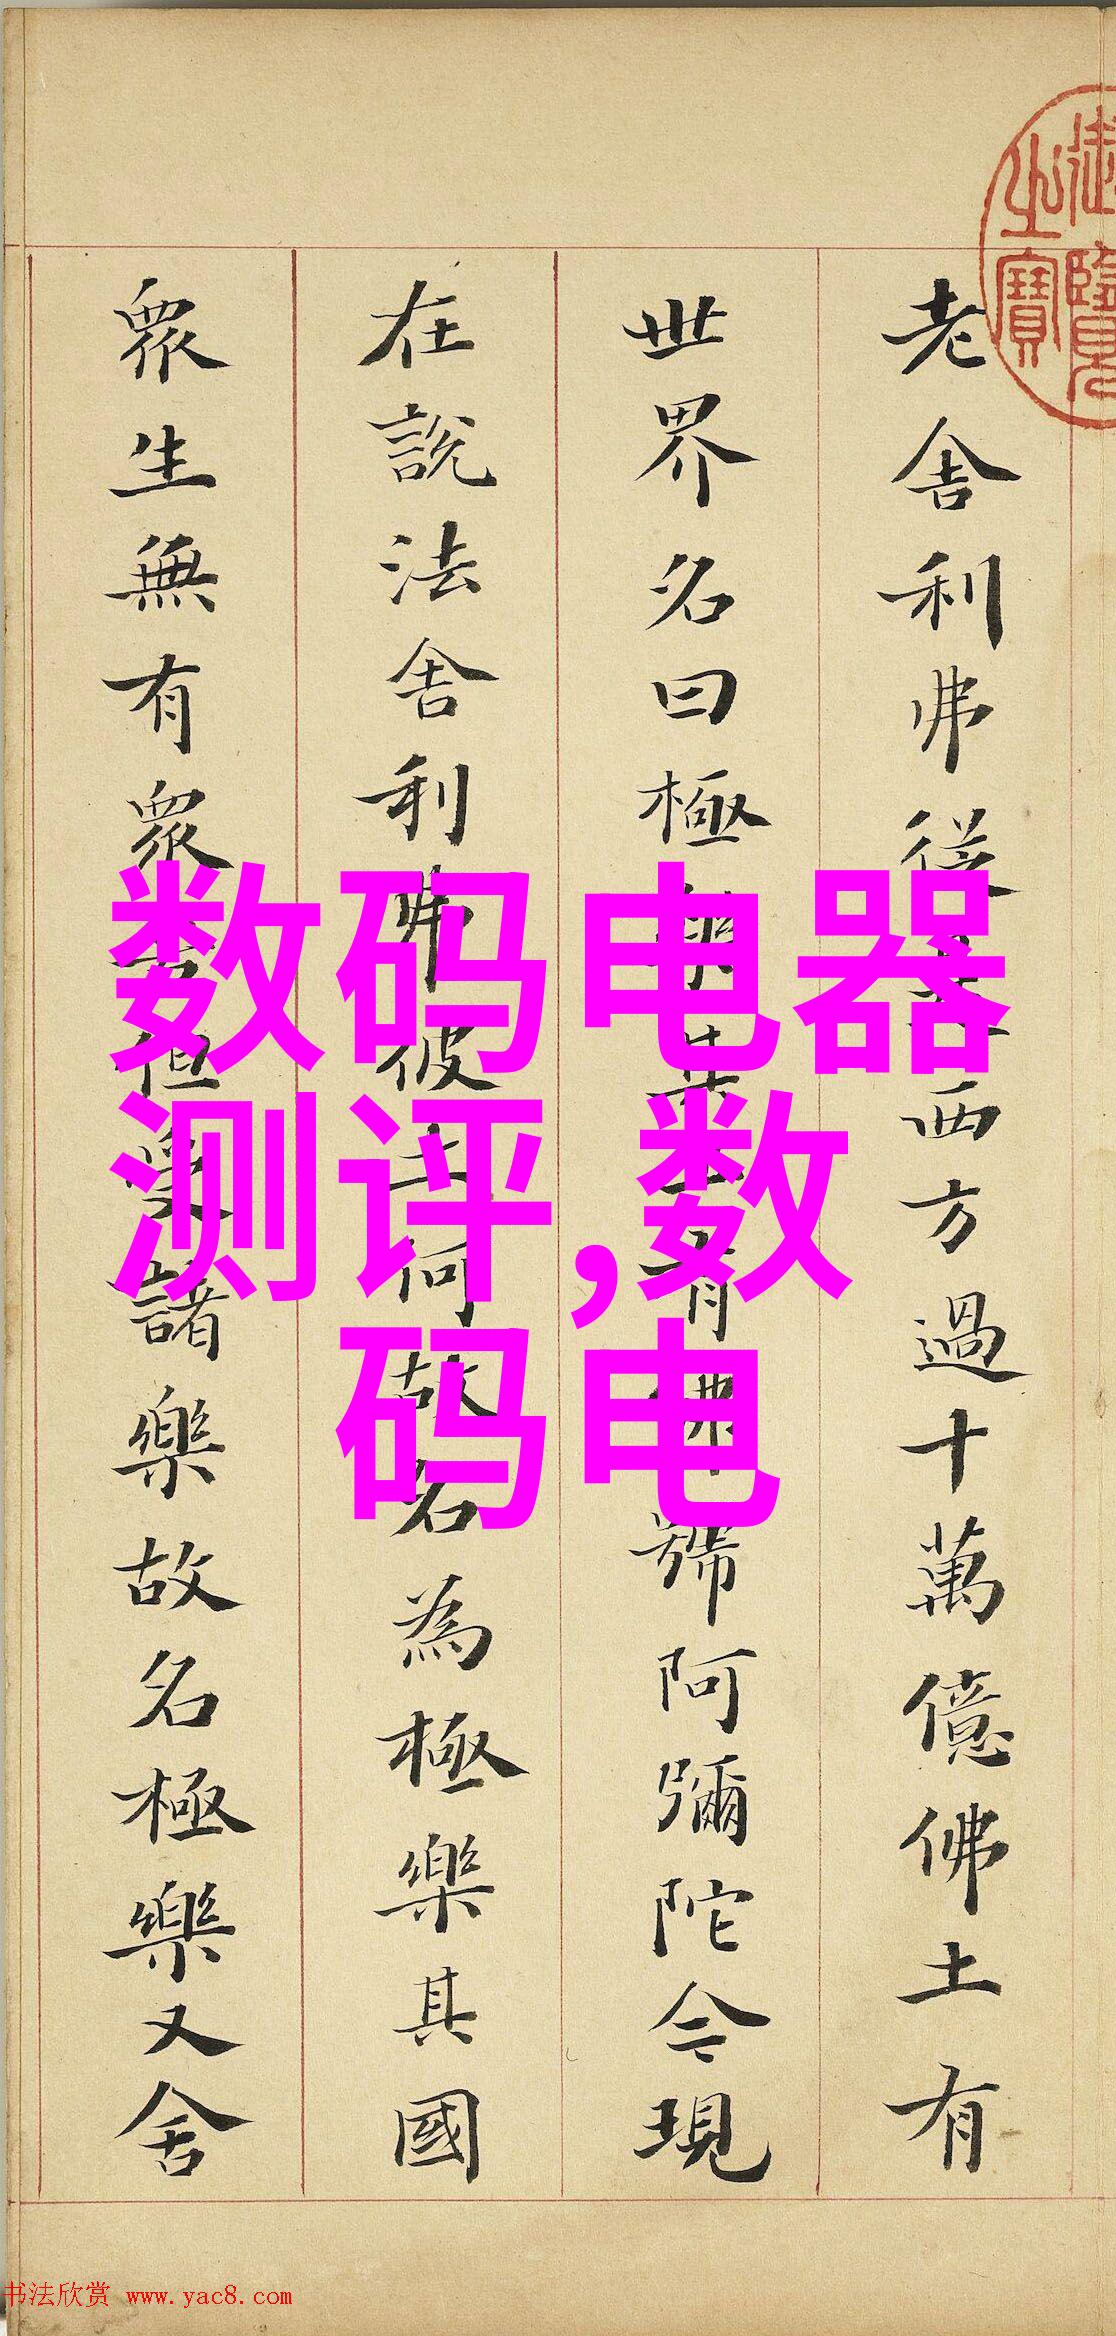 老舍利弗從是西方過十萬億佛土有
世界名曰極樂其土有佛號阿彌陀今現
在說法舍利弗彼土何故名為極樂其國
眾生無有眾苦但受諸樂故名極樂又舍
御覽之寶
数码电器
测评,数
码电
书法欣赏 www.yac8.com